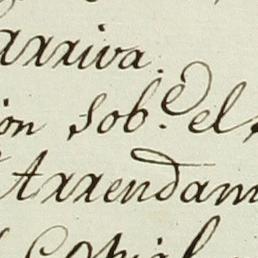 arriva.
ion sob.e el
Arrendam
Copial